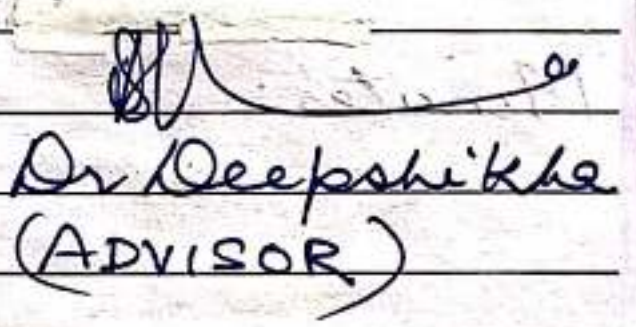 Dr Deepshikha
(ADVISOR)